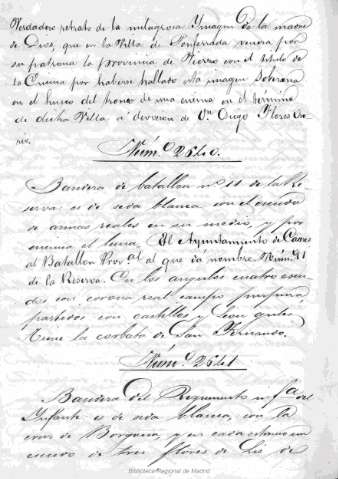 Verdadero retrato de la milagrosa Ymagen de la madre
de Dios, que en la Villa de Ponferrada venera por
su patrona la provincia de Vierzo con el titulo de
la Encina por haberse hallado esta imagen soberana
en el hueco del tronco de una encina en el término
de dicha Villa a devocion de Dn Diego Flores
Núm.o 2640.
Bandera de batallon nº 11 de la Re-
serva: es de seda blanca con el escudo
de armas reales en su medio, y por
encima el lema, El Ayuntamiento de
al Batallon Proval al que da nombre. Núm. 91
de la Reserva. En los angulos cuatro escu-
dos con corona real campo purpura
partidos con castillos y leon
tiene la corbata de San Fernando.
Núm.o 2641
Bandera del Regimiento infa del
Infante es de seda blanca, con la
cruz de Borgoña, y en cada estremo un
escudo de tres flores de Lis de
Biblioteca Regional de Madrid